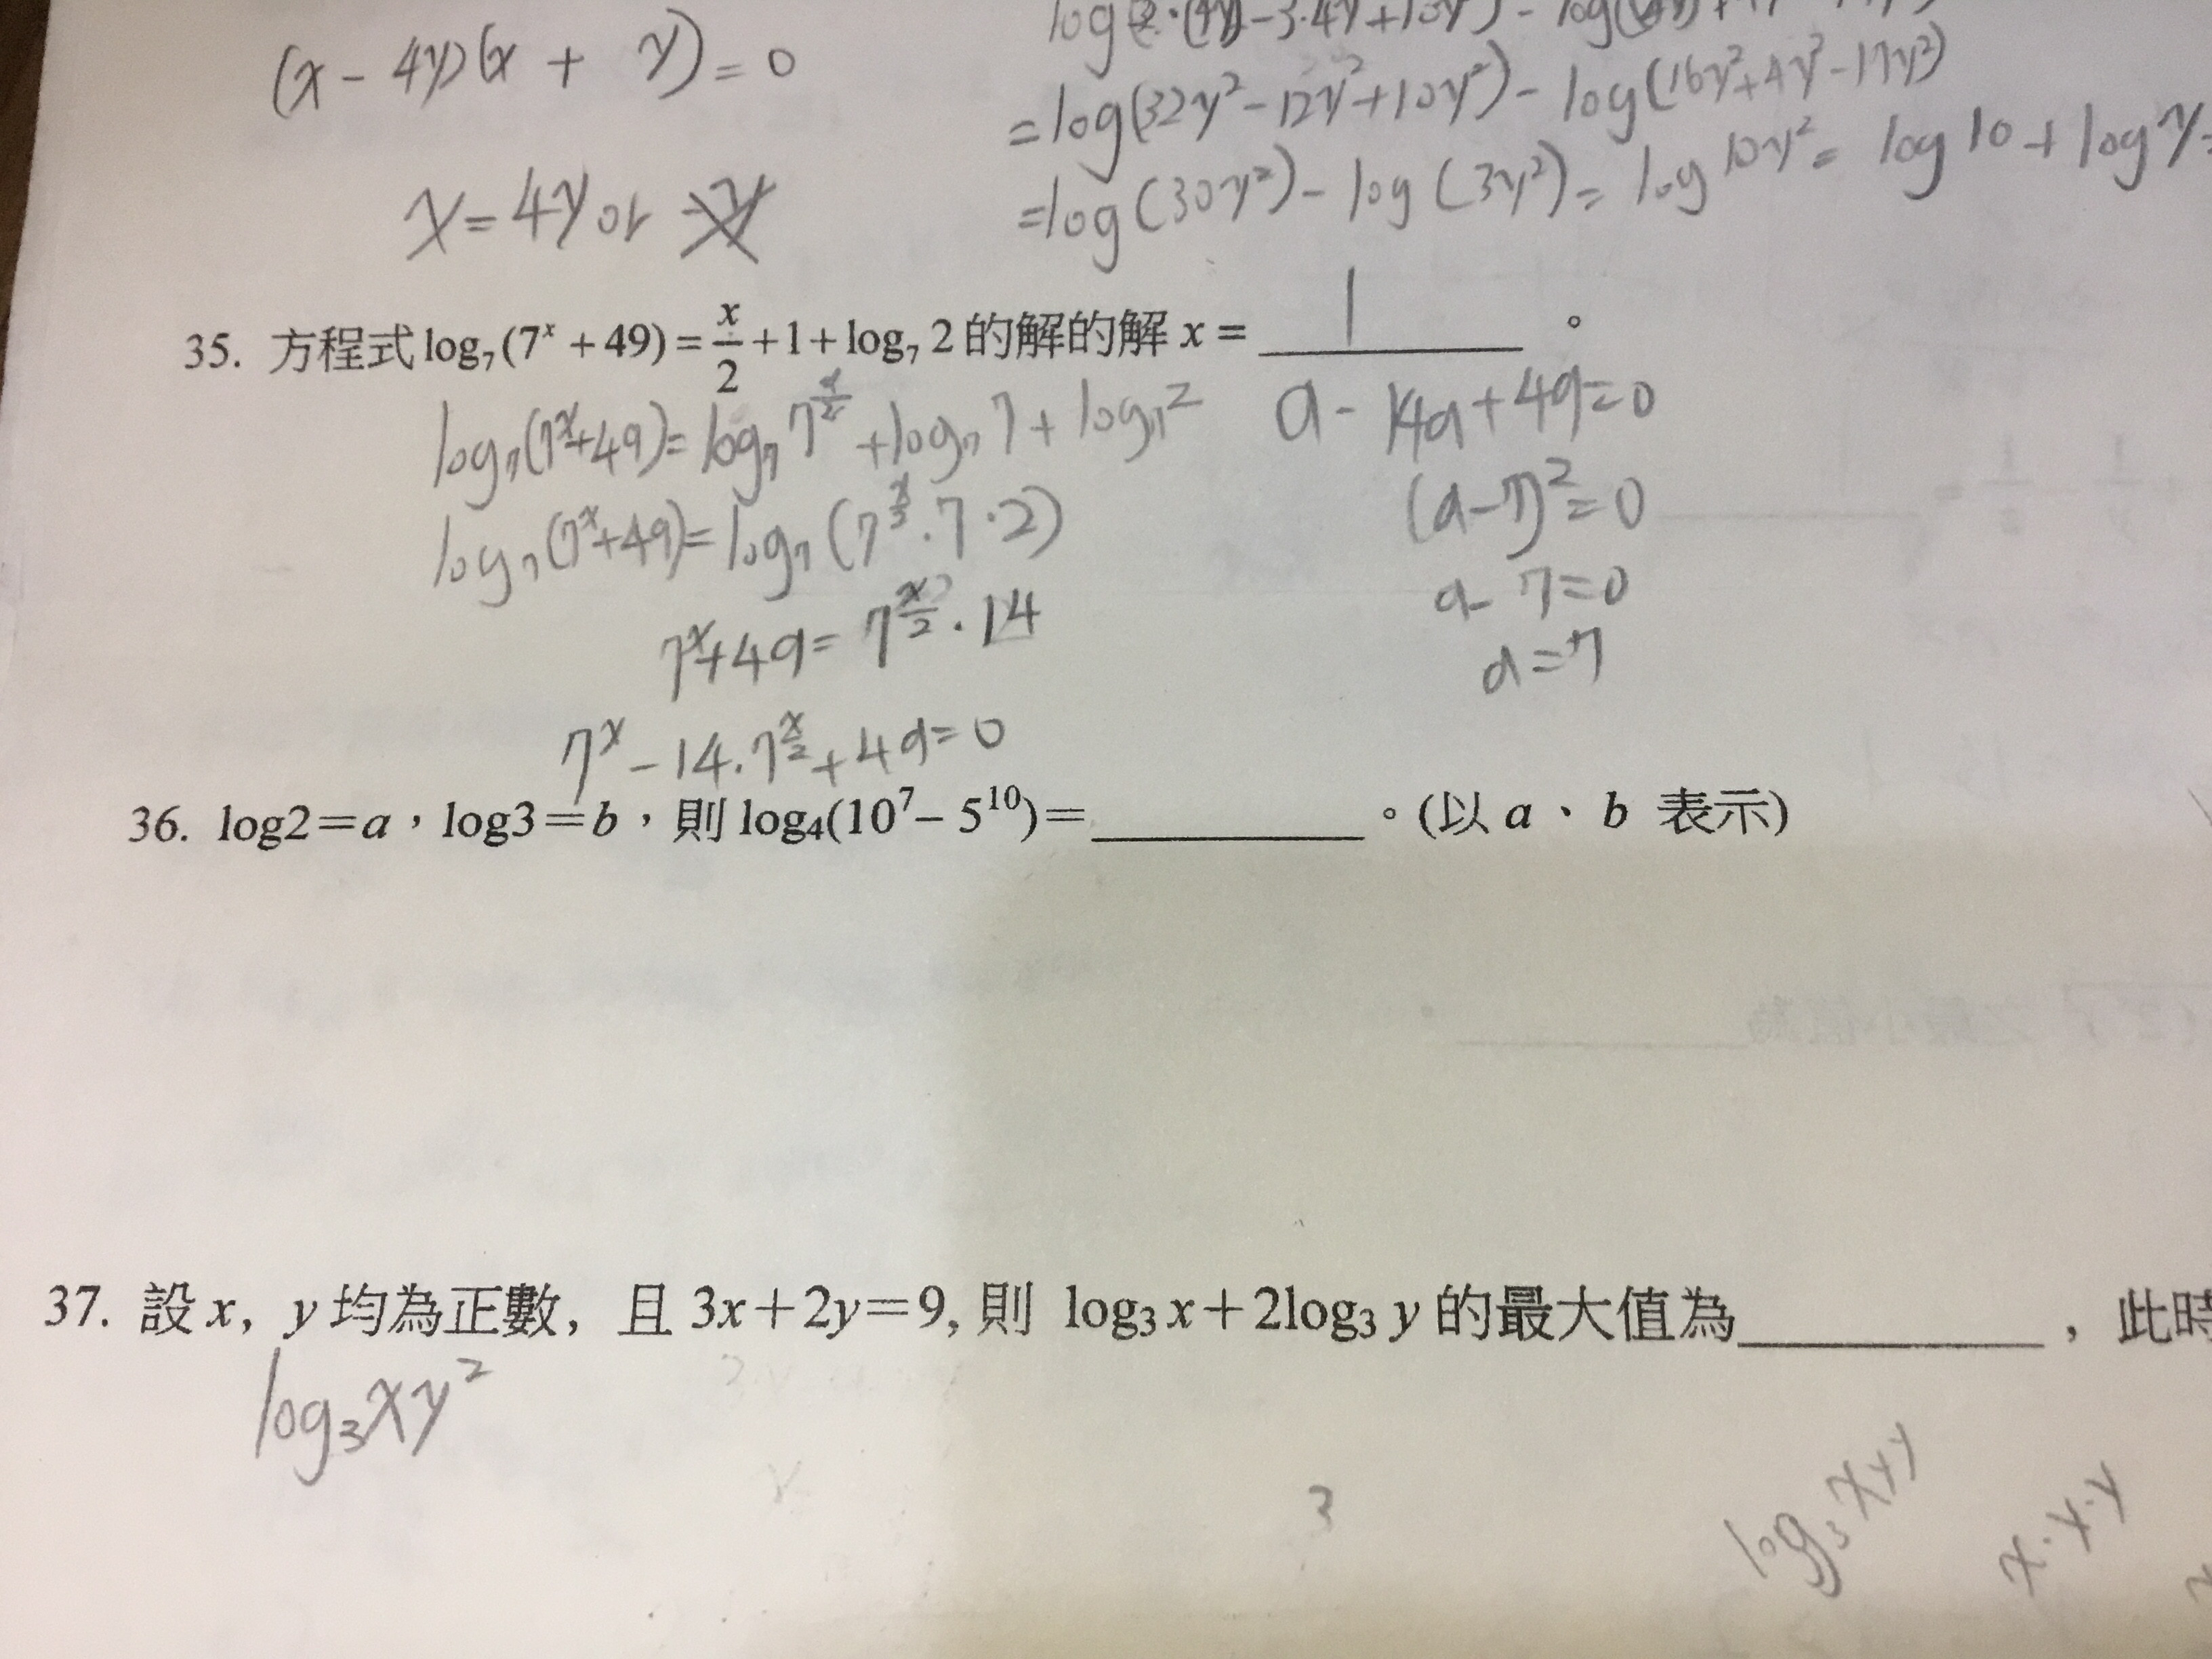 (x - 4y)(x + y) = 0
x = 4y or
= log(32y² - 12y² + 10y²) - log(16y² + 4y² - 17y²)
= log(30y²) - log(3y²) = log 10y² = log 10 + log y
35. 方程式 log₇(7ˣ + 49) = x/2 + 1 + log₇ 2 的解的解 x = 1 。
log₇(7ˣ+49) = log₇ 7^(x/2) + log₇ 7 + log₇ 2
log₇(7ˣ+49) = log₇ (7^(x/2) · 7 · 2)
7ˣ+49 = 7^(x/2) · 14
7ˣ - 14 · 7^(x/2) + 49 = 0
a - 14a + 49 = 0
(a - 7)² = 0
a - 7 = 0
a = 7
36. log2＝a，log3＝b，則 log₄(10⁷– 5¹⁰)＝__________。(以 a、b 表示)
37. 設 x, y 均為正數, 且 3x＋2y＝9, 則 log₃ x＋2log₃ y 的最大值為__________, 此時
log₃xy²
3
log₃ x+y
x·y·y